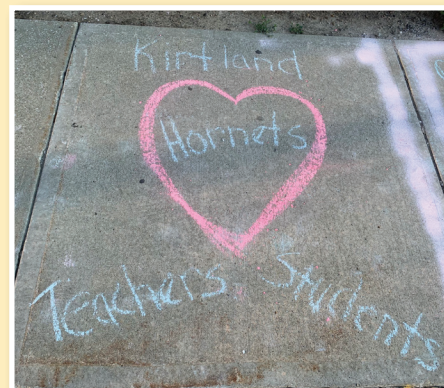 Kirtland
Hornets
Teachers Students